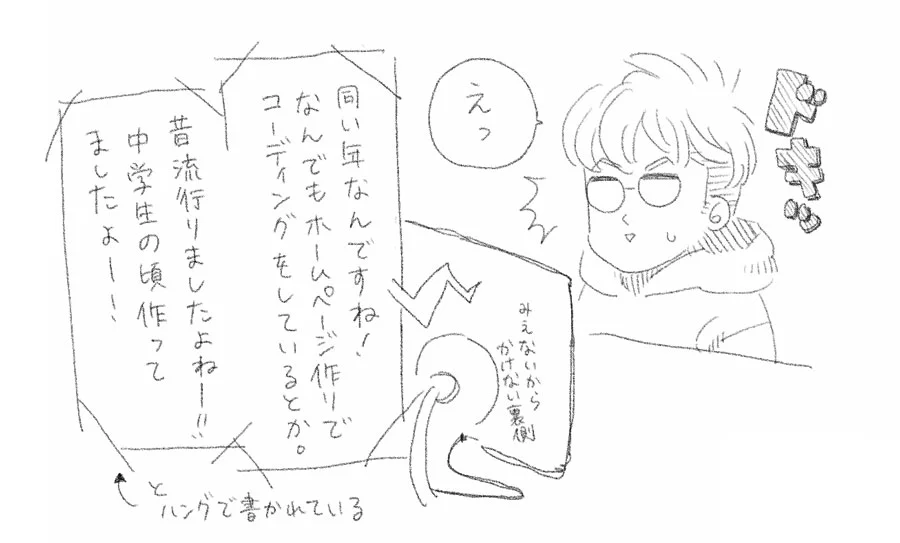 ドキッ
えっ
同い年なんですね!
なんでもホームページ作りで
コーディングをしているとか。
昔流行りましたよねー!!
中学生の頃作って
ましたよー!
みえないから
かけない裏側
と
ハングで書かれている